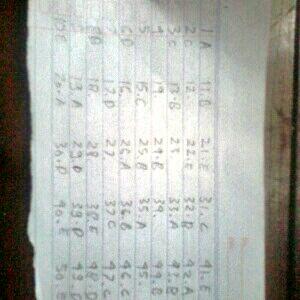 1 A 11.B 21.E 31.C 41.E
2 C 12. 22.E 32.B 42 A
3.C 13.B 23 33.A 43.B
4 14. 24.B 34. 44.B
5 15.C 25.B 35.A 45.
6D 16. 26.A 36.B 46.C
7 17.D 27 37C 47.C
8D 18. 28 38 E 48.D
19 A 29.D 39.D 49.D
10.E 20.A 30.D 40.E 50.B